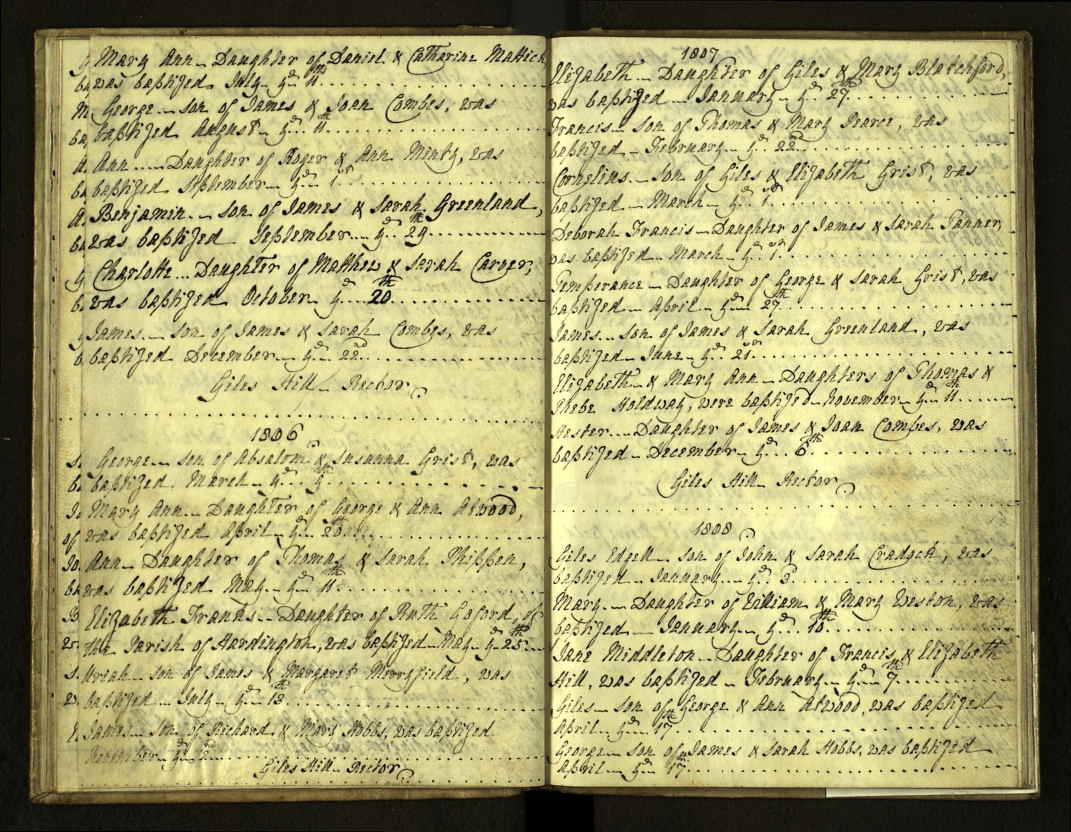 Mary Ann Daughter of Daniel & Catharine Mattick
was baptized July ye 11th
George son of James & Joan Combes, was
baptized August ye 11th
Ann Daughter of Roger & Ann Minty, was
baptized September ye 1st
Benjamin son of James & Sarah Greenland,
was baptized September ye 29th
Charlotte Daughter of Matthew & Sarah Carver,
was baptized October ye 20th
James son of James & Sarah Combes, was
baptized December ye 22d
Giles Hill Rector
1806
George son of Absalom & Susanna Grist, was
baptized March ye
Mary Ann Daughter of George & Ann Atwood,
was baptized April ye 20th
Ann Daughter of Thomas & Sarah Phippen,
was baptized May ye 11th
Elizabeth Francis Daughter of Ruth of
the Parish of Hardington, was baptized May ye 25th
Uriah son of James & Margaret Merryfield, was
baptized July ye 13th
James Son of Richard & Mary Hobbs, was baptized
November ye 2d
Giles Hill Rector
1807
Elizabeth Daughter of Giles & Mary Blatchford,
was baptized January ye 27th
Francis son of Thomas & Mary Pearce, was
baptized February ye 22d
Cornelius son of Giles & Elizabeth Grist, was
baptized March ye 1st
Deborah Francis Daughter of James & Sarah Tanner,
was baptized March ye 1st
Temperance Daughter of George & Sarah Grist, was
baptized April ye 27th
James son of James & Sarah Greenland, was
baptized June ye 21st
Elizabeth & Mary Ann Daughters of Thomas &
Phebe Holdway, were baptized November ye 11th
Hester Daughter of James & Joan Combes, was
baptized December ye 6th
Giles Hill Rector
1808
Giles Edgell son of John & Sarah Cradock, was
baptized January ye 3
Mary Daughter of William & Mary Weston, was
baptized January ye 10th
Jane Middleton Daughter of Francis & Elizabeth
Hill, was baptized February ye 7th
Giles son of George & Ann Atwood, was baptized
April ye 17th
George son of James & Sarah Hobbs, was baptized
April ye 17th